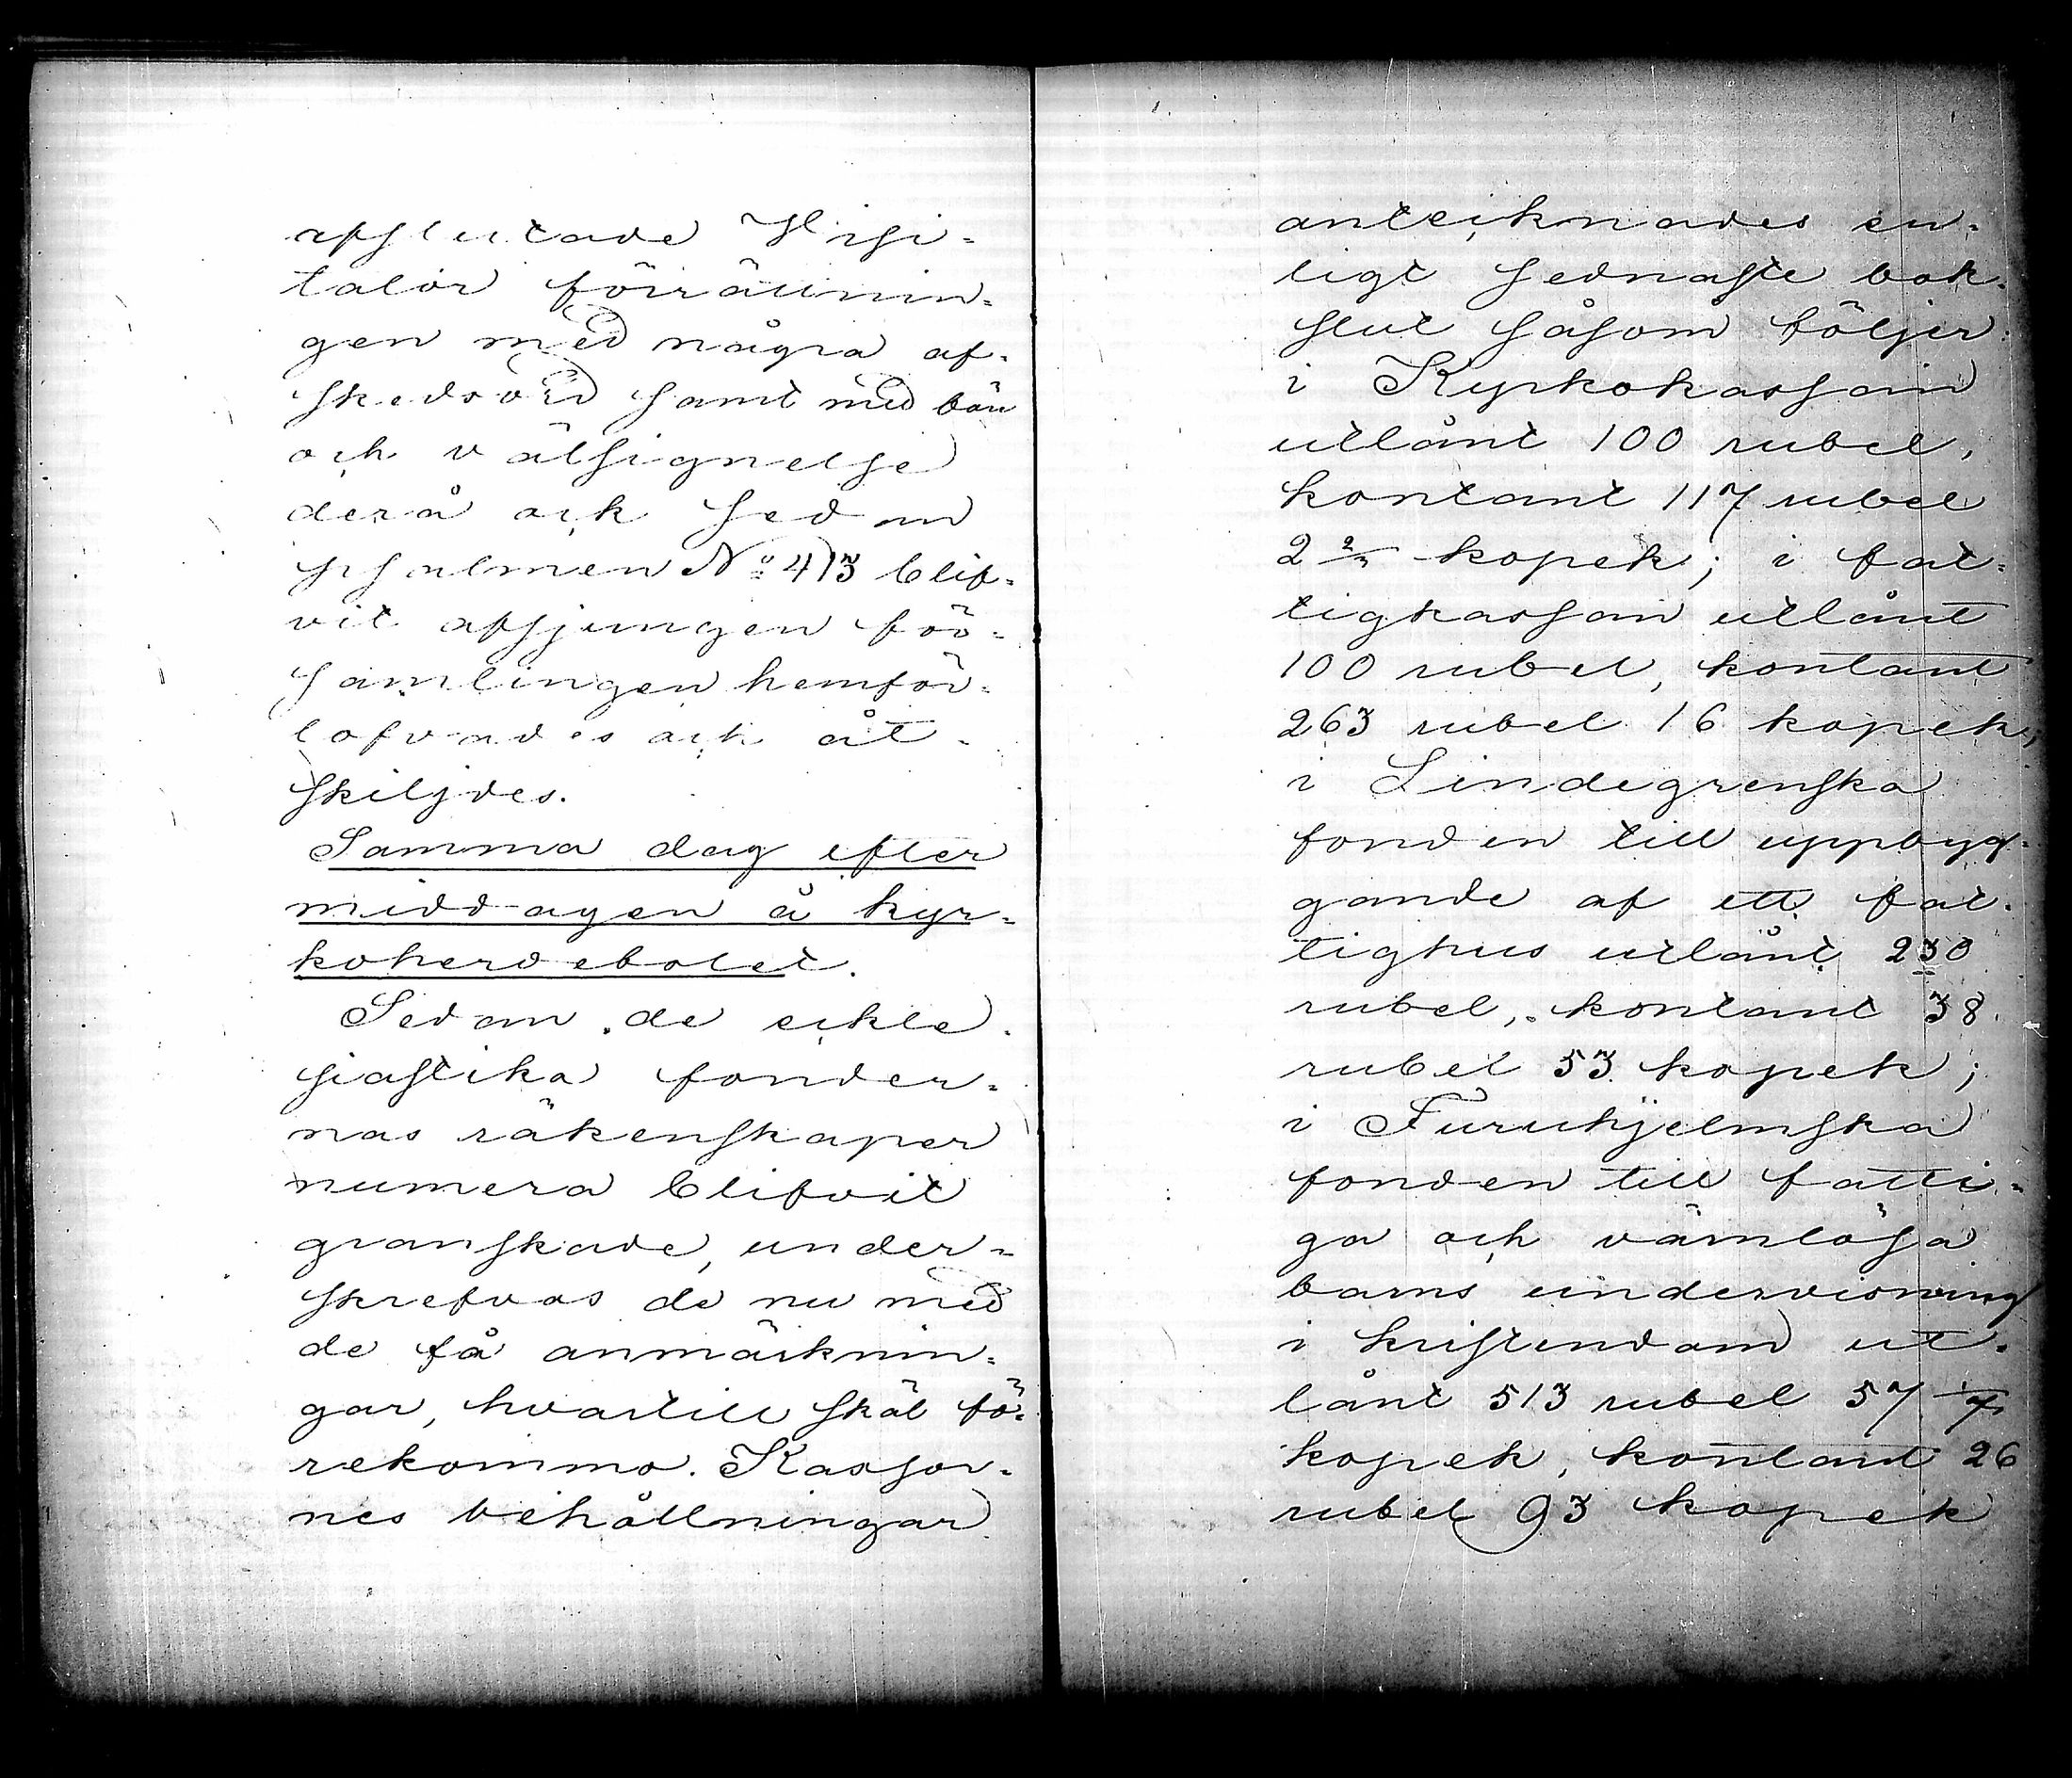 afslutade Visi-
tator förrättnin-
gen med några af-
skedsord samt med bön
och välsignelse
derå och sedan
psalmen No 413 blif-
vit afsjungen för-
samlingen hemför-
lofvades och åt-
skiljdes.
Samma dag efter
middagen å kyr-
koherdebolet.
Sedan de eckle-
siastika fonder-
nas räkenskaper
numera blifvit
granskade, under-
skrefvos de nu med
de få anmärknin-
gar, hvartill skäl fö-
rekommo. Kassor-
nes behållningar
antecknades en-
ligt sednaste bok-
slut såsom följer:
i Kyrkokassan
utlånt 100 rubel,
kontant 117 rubel
2 2/7 kopek; i fat-
tigkassan utlånt
100 rubel, kontant
263 rubel 16 kopek;
i Lindegrenska
fonden till uppbyg-
gande af ett fat-
tighus utlånt 230
rubel, kontant 38
rubel 53 kopek;
i Furuhjelmska
fonden till fatti-
ga och värnlösa
barns undervisning
i kristendom ut-
lånt 513 rubel 57 1/7
kopek, kontant 26
rubel 93 kopek